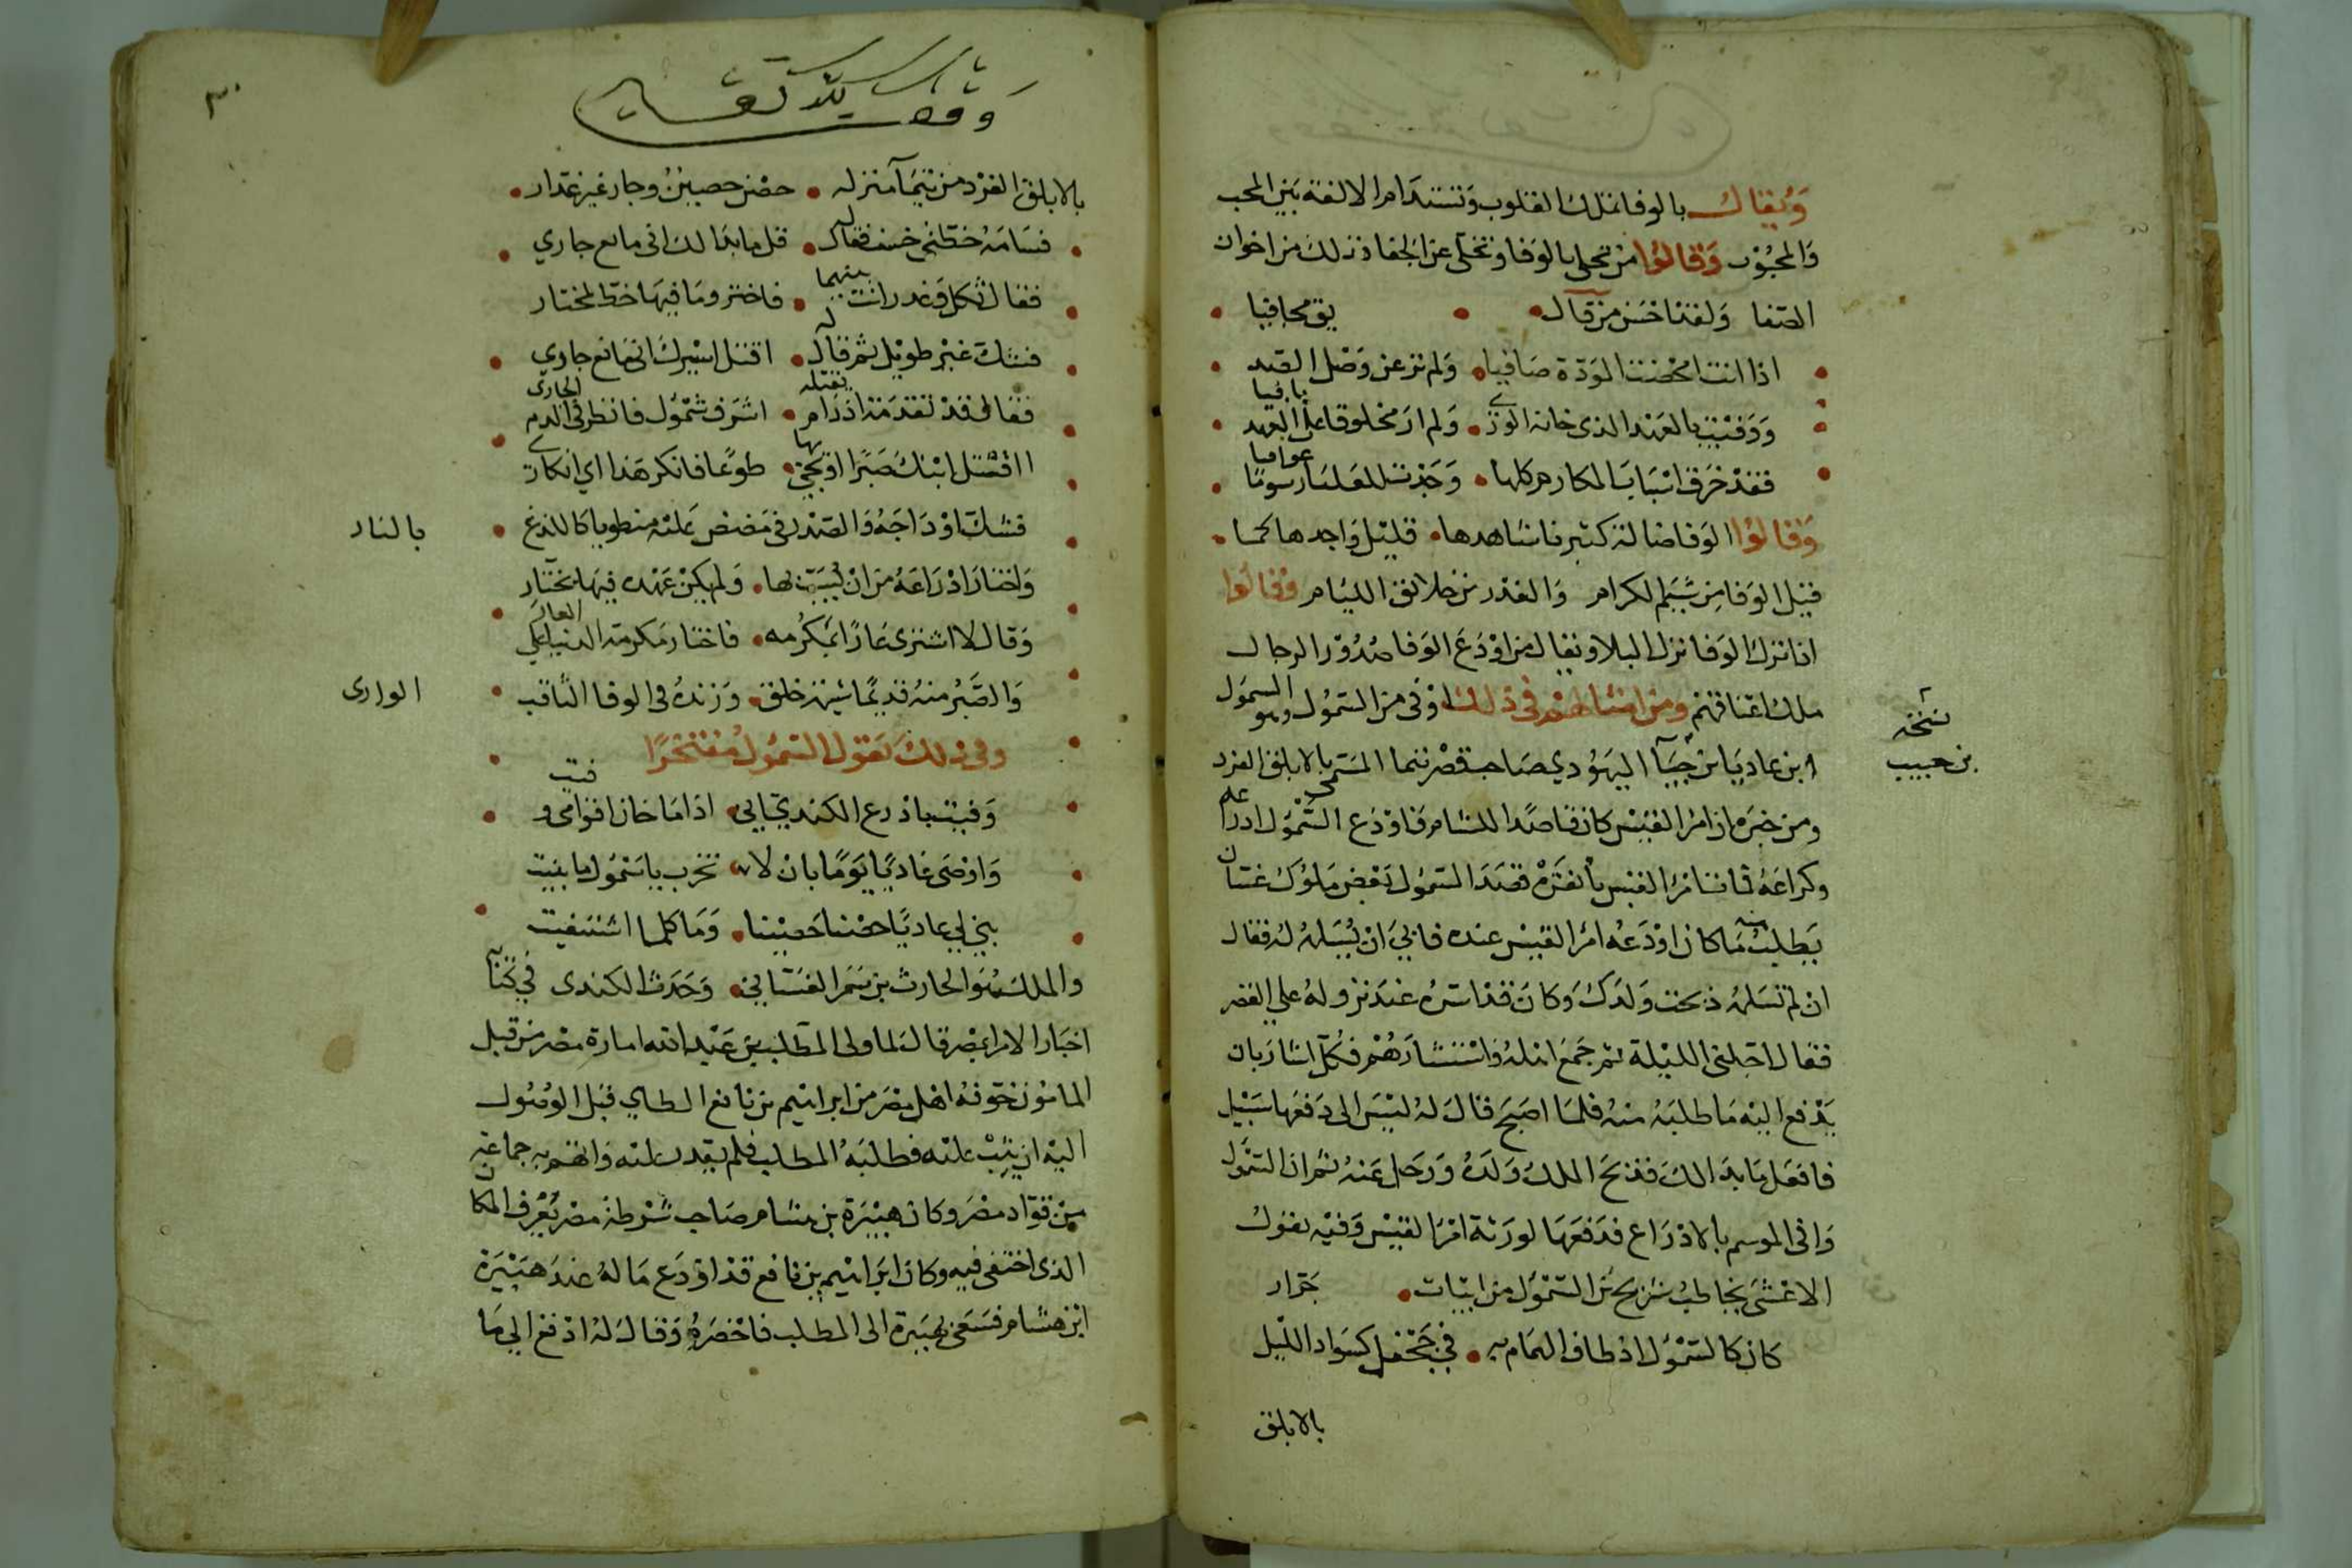 ويقال بالوفا تملك القلوب وتستدام الالفة بين المحب
والمحبوب وقالوا من تحلى بالوفا وتخلى عن الجفا فذلك من اخوان
الصفا ولقد احسن من قال
اذا انت امحضت المودة صافيا ولم تر عن وصل الصديق مجافيا
ووفيت بالعهد الذي خانه الورى ولم ار مخلوقا على العهد باقيا
فقد خرق اسباب المكارم كلها وجددت للعليا رسوما عوافيا
وقالوا الوفا ضالة كثير ناشدها قليل واجدها كما
قيل الوفا من شيم الكرام والغدر من خلائق الليام وقالوا
اذا ترك الوفا نزل البلا ويقال من اودع الوفا صدور الرجال
ملك اعناقهم ومن امثالهم في ذلك اوفى من السمؤل وهو السمول
ابن عاديا بن حيا اليهودي صاحب قصر تيما المسمى بالابلق الفرد
نسخة
بن حبيب
ومن خبره ان امرا القيس كان قاصدا للشام فاودع السمؤل ادراعه
وكراعه فمات امرا القيس بانقره قصد السمؤل بعض ملوك غسان
يطلب منه ما كان اودعه امرا القيس عنده فابى ان يسلمه له فقال
ان لم تسلمه ذبحت ولدك وكان قد اسره عند نزوله على القصر
فقال اجلني الليلة ثم جمع اهله واستشارهم فكل اشار بان
يدفع اليه ما طلبه منه فلما اصبح قال له ليس الى دفعها سبيل
فافعل ما بدا لك فذبح الملك ولده ورحل عنه ثم ان السمؤل
وافى الموسم بالادراع فدفعها لورثة امرا القيس وفيه يقول
الاعشى يخاطب شريح بن السمؤل من ابيات
كان كالسمؤل اذ طاف الهمام به في جحفل كسواد الليل جرار
بالابلق
٣٠
وقف لله تعالى
بالابلق الفرد من تيما منزله حصن حصين وجار غير غدار
فسامه خطتي خسف فقال له قل ما بدا لك اني مانع جاري
فقال ثكل وغدر انت بينهما فاختر وما فيها حظ لمختار
فشك غير طويل ثم قال له اقتل اسيرك اني مانع جاري
فقال قد تقدمة اذ رام يقتله اشرف سمؤل فانظر في الدم الجاري
ااقتل ابنك صبرا او تجي بها طوعا فانكر هذا اي انكار
فشك اوداجه والصدر في مضض عليه منطويا كاللذع بالنار
واختار ادراعه من ان يسب بها ولم يكن عهده فيها بختار
وقال لا اشترى عارا بمكرمه فاختار مكرمة الدنيا على العار
والصبر منه قديما شيمة خلق وزنده في الوفا الثاقب الوارى
وفي ذلك يقول السمؤل مفتخرا
وفيت بادرع الكندي اني اذا ما خان اقوامي وفيت
واوصى عاديا يوما بان لا تخرب يا سمؤل ما بنيت
بنى لي عاديا حصنا حصينا وما كلما اشتفيت
والملك هو الحارث بن شمر الغساني وحدث الكندى في كتاب
اخبار الامرا بمصر قال لما ولى المطلب بن عبد الله امارة مصر من قبل
المامون خوفه اهل مصر من ابراهيم بن نافع الطاي قبل الوصول
اليه ان يثب عليه فطلبه المطلب فلم يقدر عليه واتهم به جماعة
من قواد مصر وكان هبيرة بن هشام صاحب شرطة مصر يعرف المكان
الذى اختفى فيه وكان ابراهيم بن نافع قد اودع ماله عند هبيرة
ابن هشام فسعى بهبيرة الى المطلب فاحضره وقال له ادفع الي ما